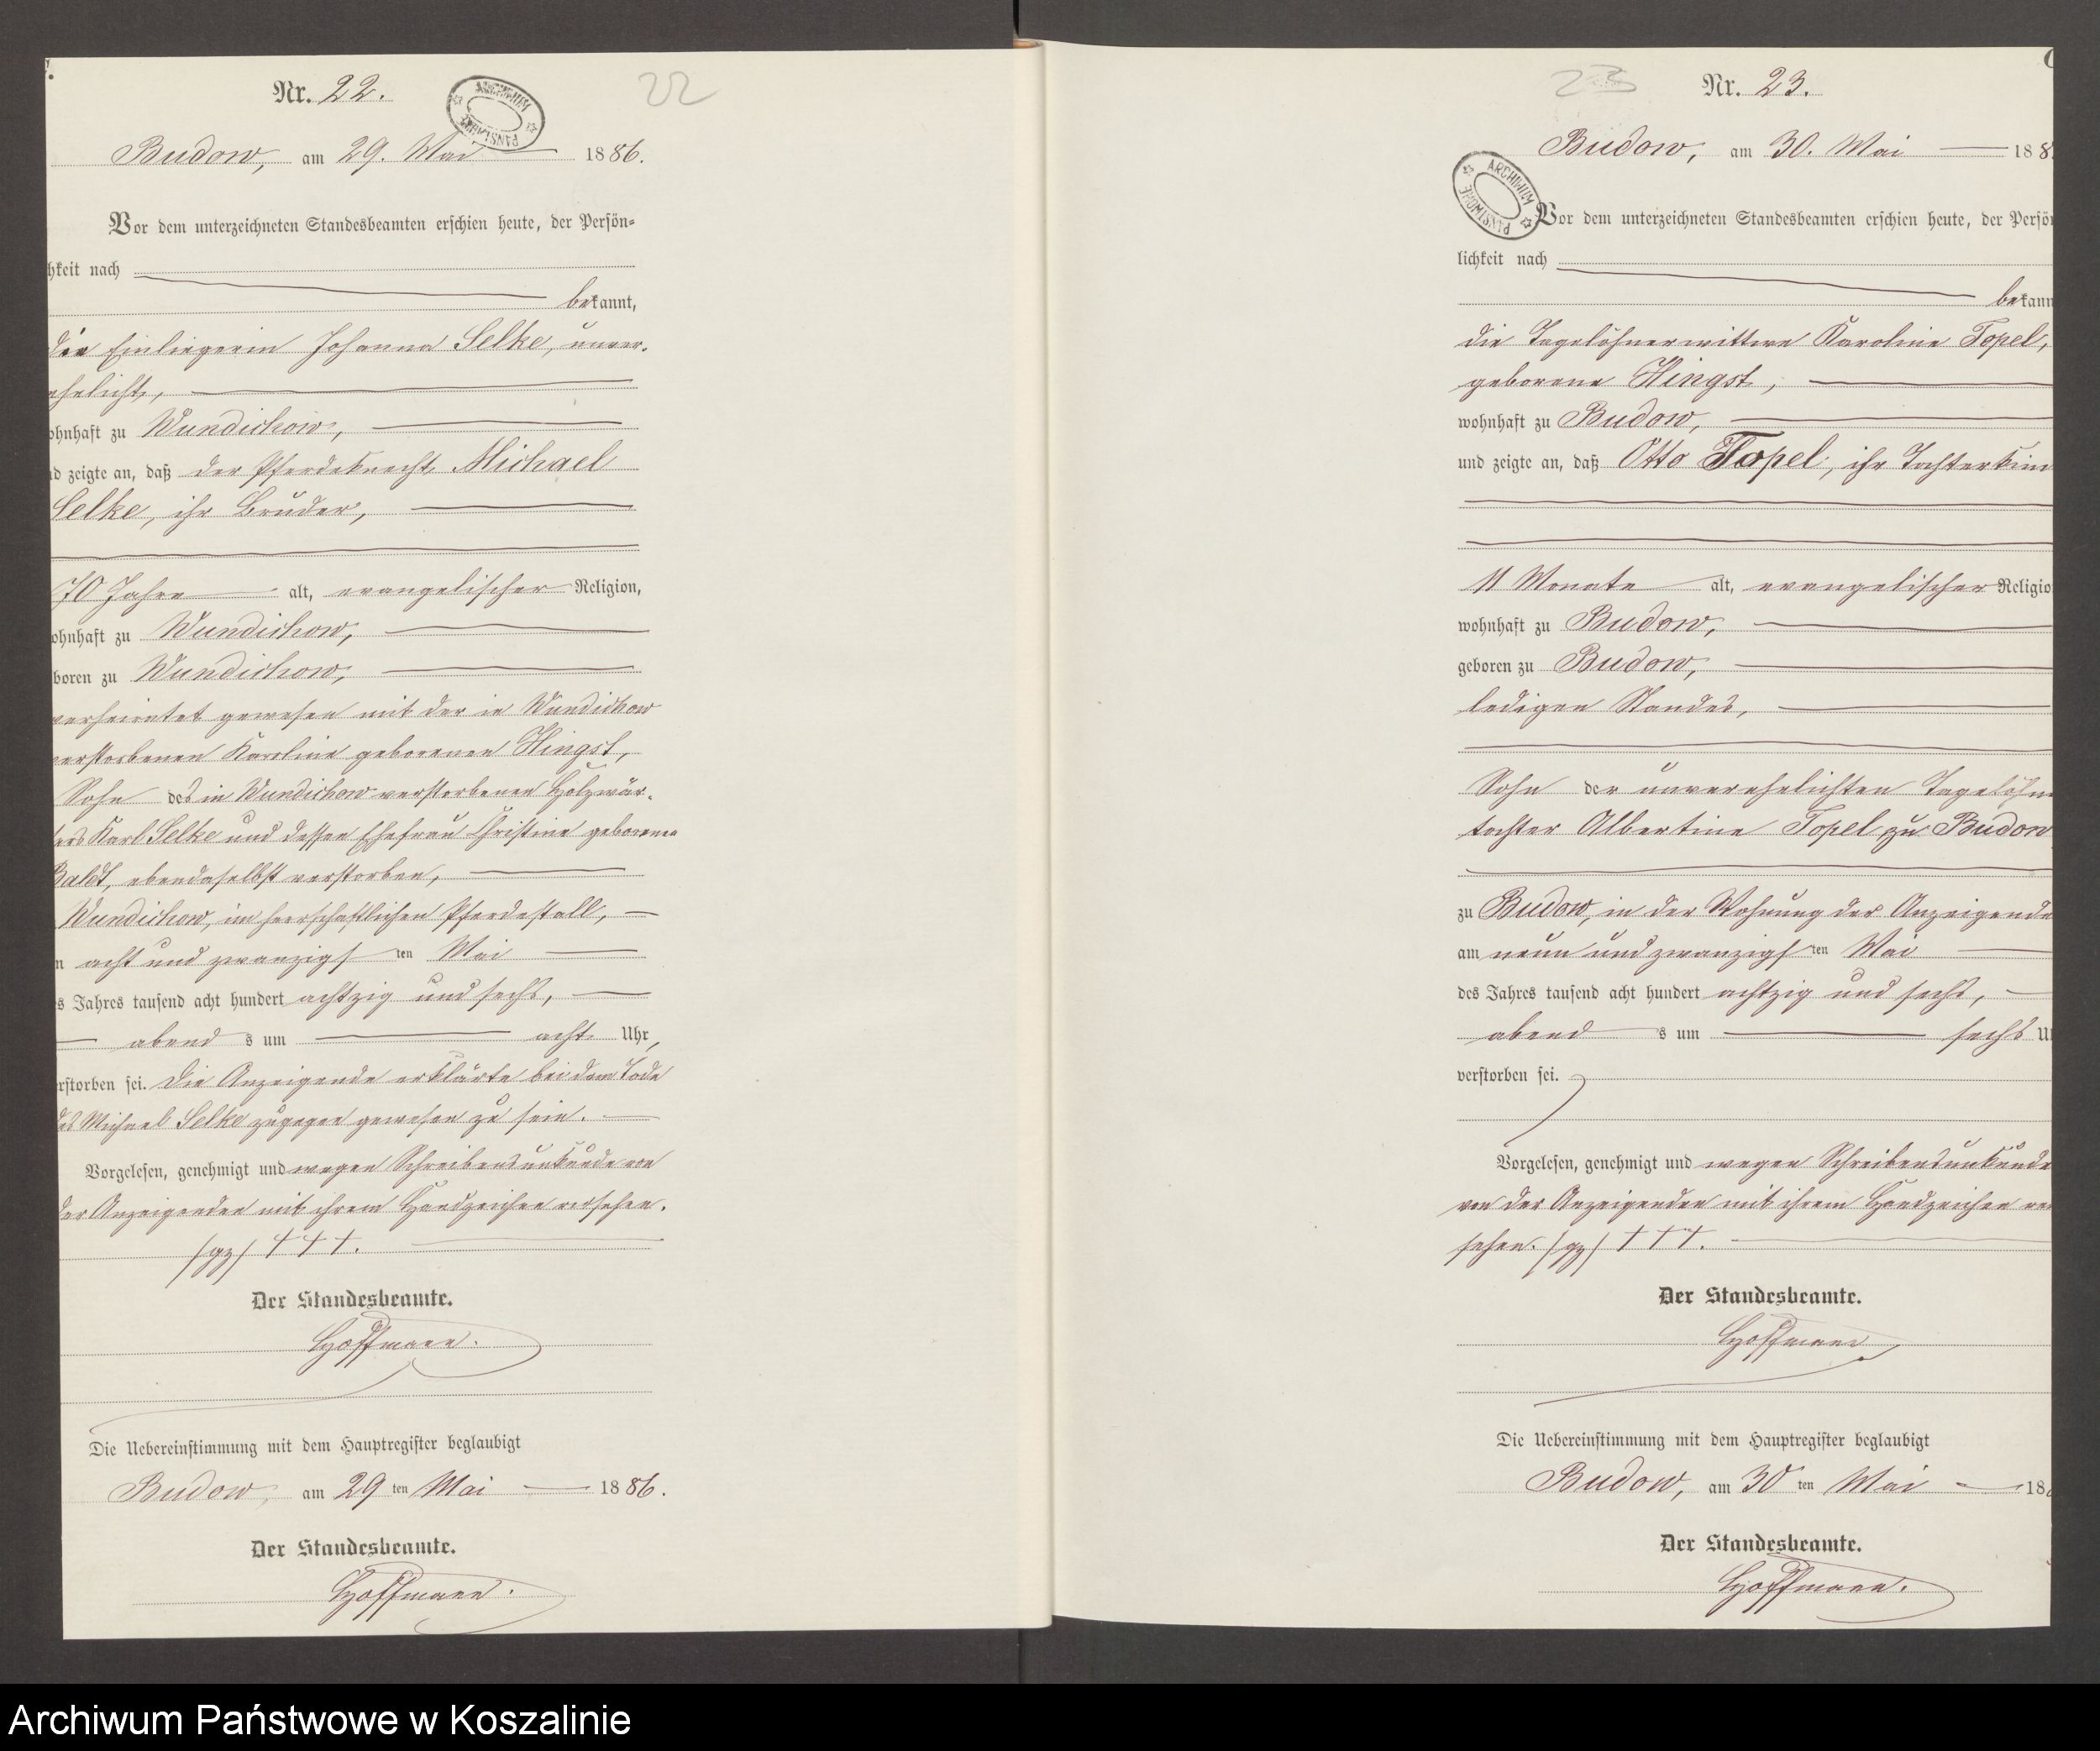 Nr. 22.
22
ARCHIWUM PAŃSTWOWE
Budow, am 29. Mai 1886.
Vor dem unterzeichneten Standesbeamten erschien heute, der Persön=
hkeit nach
bekannt,
die Einliegerin Johanna Selke, unver-
ehelicht,
ohnhaft zu Wundichow,
d zeigte an, daß der Pferdeknecht Michael
Selke, ihr Bruder,
70 Jahre alt, evangelischer Religion,
ohnhaft zu Wundichow,
boren zu Wundichow,
verheirathet gewesen mit der in Wundichow
verstorbenen Karoline geborenen Hingst,
Sohn des in Wundichow verstorbenen Holzwär-
ters Karl Selke und dessen Ehefrau Christine geborenen
Baldt, ebendaselbst verstorben,
Wundichow, im herrschaftlichen Pferdestall,
n acht und zwanzigsten Mai
s Jahres tausend acht hundert achtzig und sechs,
abends um acht Uhr,
rstorben sei. Die Anzeigende erklärte bei dem Tode
des Michael Selke zugegen gewesen zu sein.
Vorgelesen, genehmigt und wegen Schreibensunkunde von
der Anzeigenden mit ihrem Handzeichen versehen.
/gz/ †††.
Der Standesbeamte.
Hoffmann.
Die Uebereinstimmung mit dem Hauptregister beglaubigt
Budow, am 29ten Mai 1886.
Der Standesbeamte.
Hoffmann.
23
Nr. 23.
ARCHIWUM PAŃSTWOWE
Budow, am 30. Mai 188
Vor dem unterzeichneten Standesbeamten erschien heute, der Persön
lichkeit nach
bekann
die Tagelöhnerwittwe Karoline Topel,
geborene Hingst,
wohnhaft zu Budow,
und zeigte an, daß Otto Topel, ihr Tochterkin
11 Monate alt, evangelischer Religio
wohnhaft zu Budow,
geboren zu Budow,
ledigen Standes,
Sohn der unverehelichten Tagelöhn
tochter Albertine Topel zu Budow
zu Budow, in der Wohnung der Anzeigende
am neun und zwanzigsten Mai
des Jahres tausend acht hundert achtzig und sechs,
abends um sechs U
verstorben sei.
Vorgelesen, genehmigt und wegen Schreibensunkunde
von der Anzeigenden mit ihrem Handzeichen ver
sehen. /gz/ †††.
Der Standesbeamte.
Hoffmann
Die Uebereinstimmung mit dem Hauptregister beglaubigt
Budow, am 30ten Mai 18
Der Standesbeamte.
Hoffmann.
Archiwum Państwowe w Koszalinie